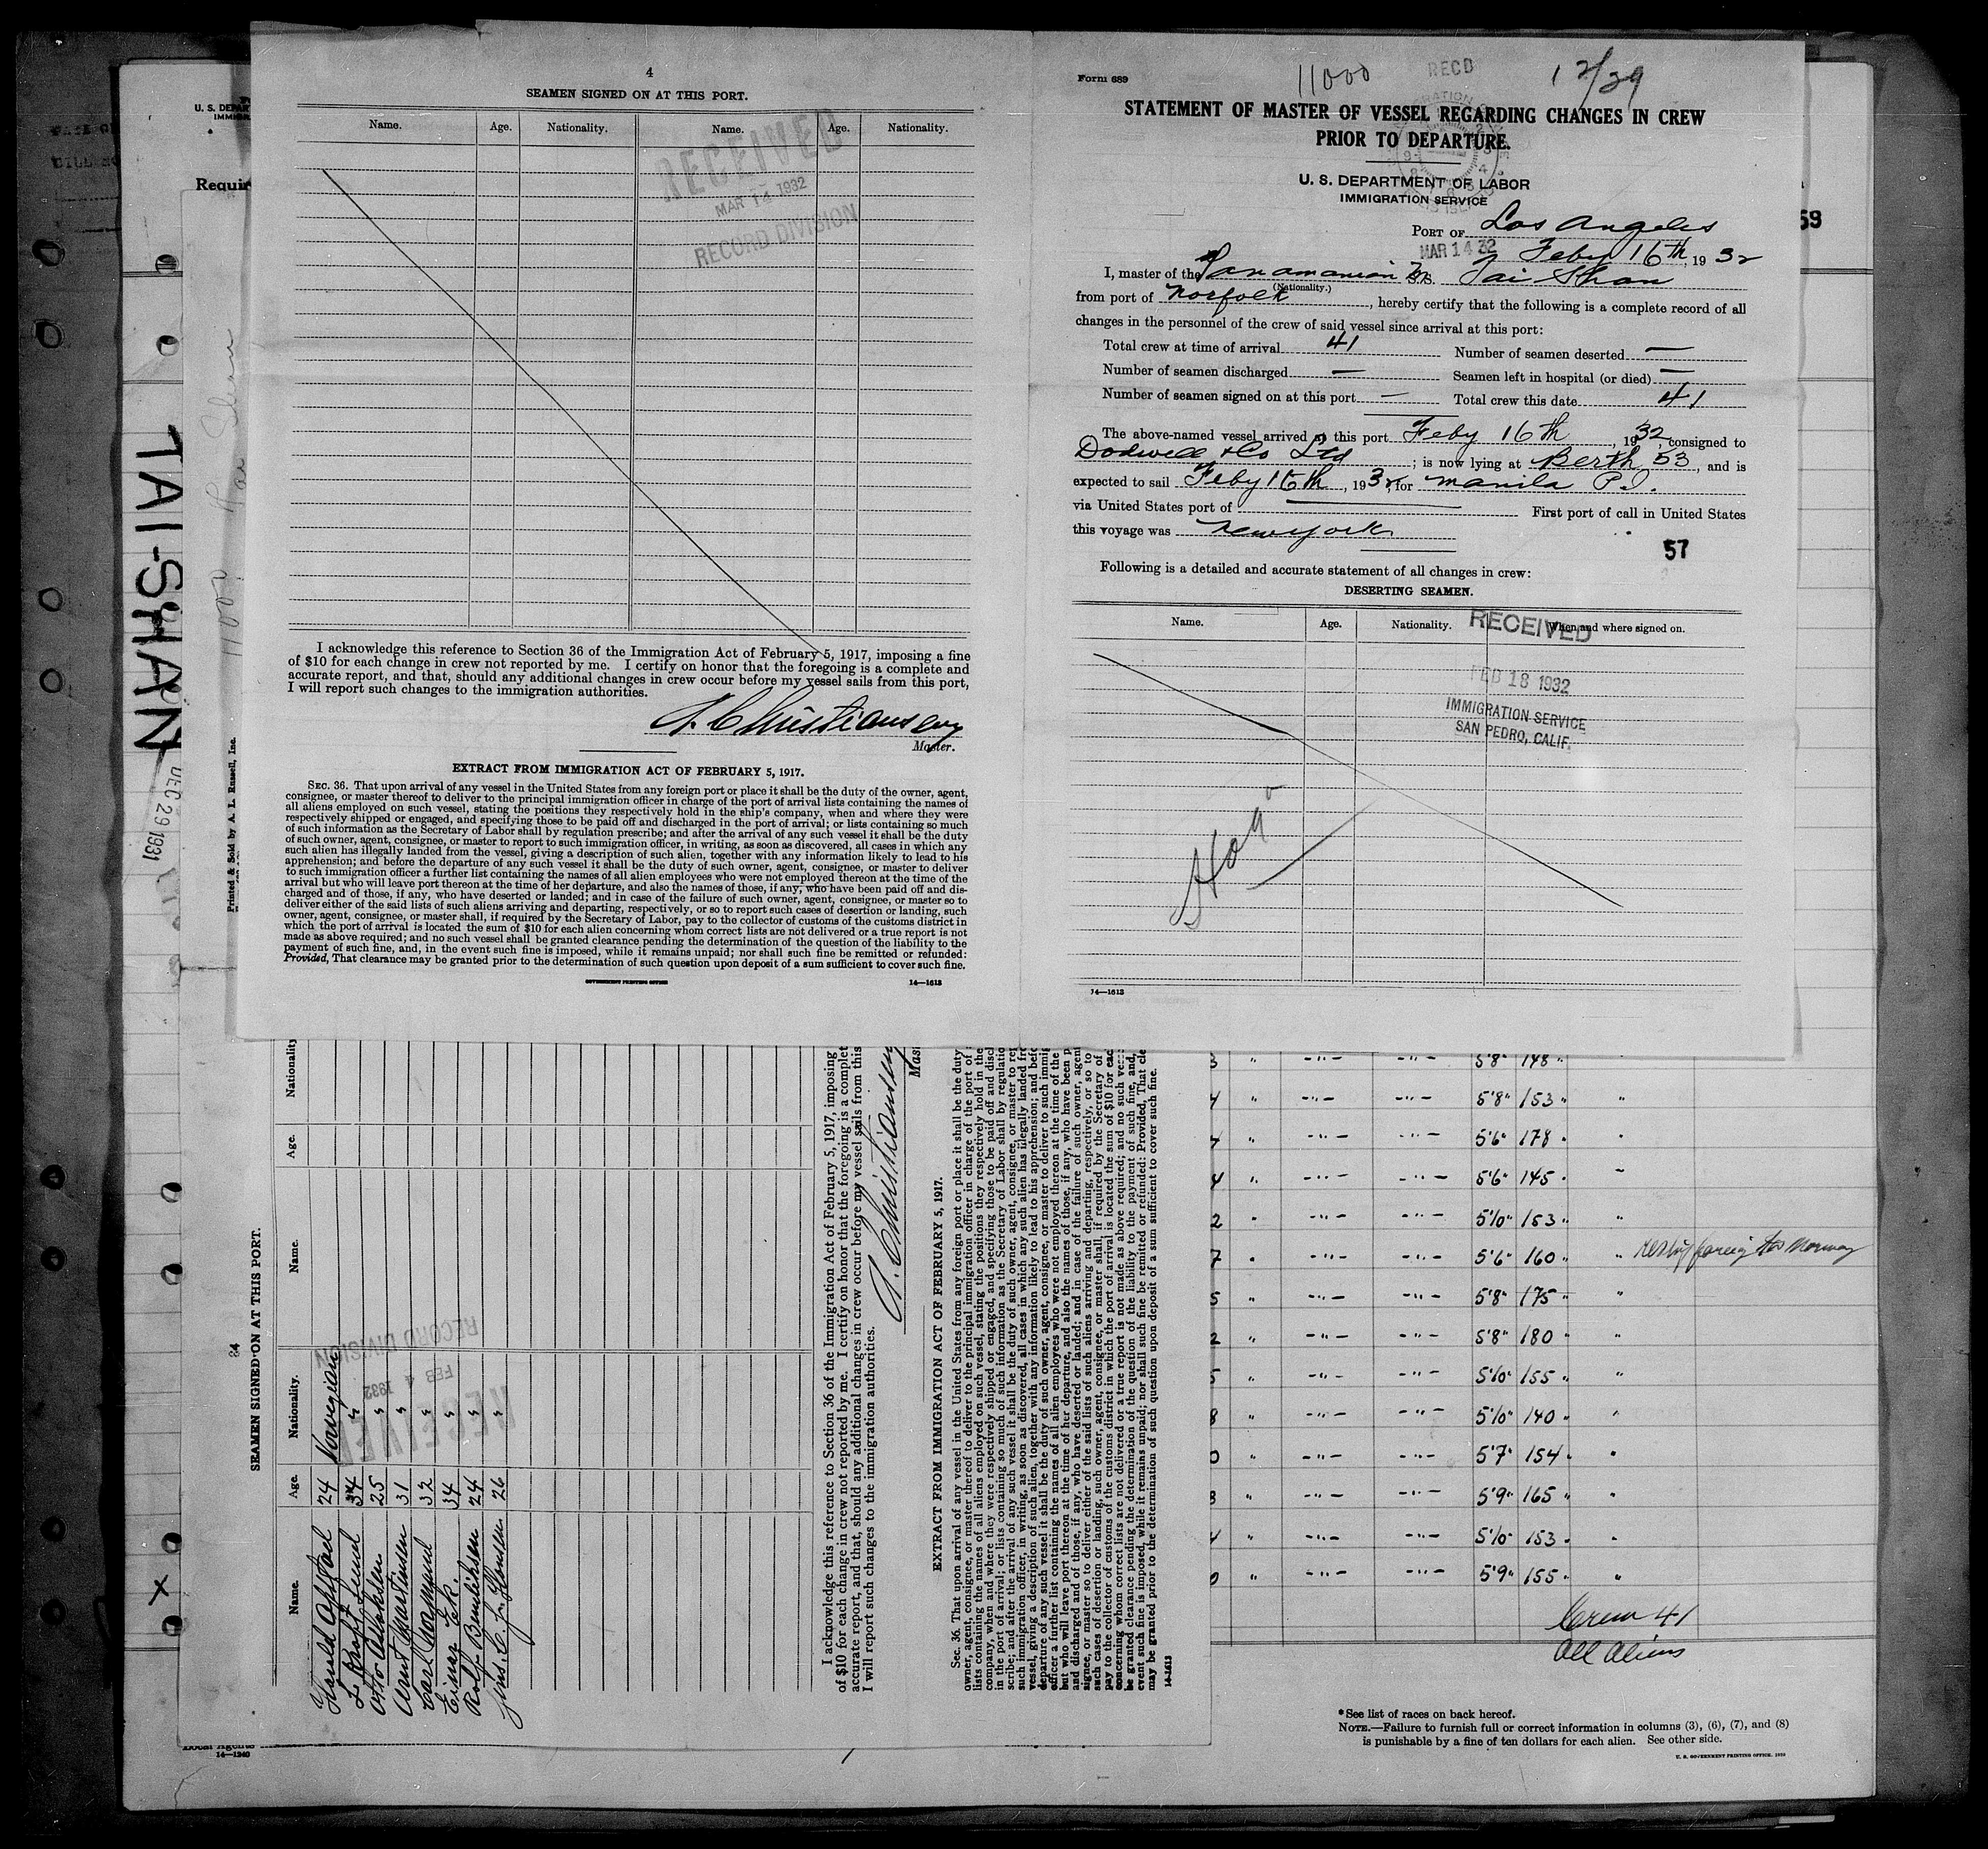 4
SEAMEN SIGNED ON AT THIS PORT.
Name. Age. Nationality. Name. Age. Nationality.
RECEIVED
MAR 14 1932
RECORD DIVISION
I acknowledge this reference to Section 36 of the Immigration Act of February 5, 1917, imposing a fine
of $10 for each change in crew not reported by me. I certify on honor that the foregoing is a complete and
accurate report, and that, should any additional changes in crew occur before my vessel sails from this port,
I will report such changes to the immigration authorities.
A. Christiansen
Master.
EXTRACT FROM IMMIGRATION ACT OF FEBRUARY 5, 1917.
SEC. 36. That upon arrival of any vessel in the United States from any foreign port or place it shall be the duty of the owner, agent,
consignee, or master thereof to deliver to the principal immigration officer in charge of the port of arrival lists containing the names of
all aliens employed on such vessel, stating the positions they respectively hold in the ship's company, when and where they were
respectively shipped or engaged, and specifying those to be paid off and discharged in the port of arrival; or lists containing so much
of such information as the Secretary of Labor shall by regulation prescribe; and after the arrival of any such vessel it shall be the duty
of such owner, agent, consignee, or master to report to such immigration officer, in writing, as soon as discovered, all cases in which any
such alien has illegally landed from the vessel, giving a description of such alien, together with any information likely to lead to his
apprehension; and before the departure of any such vessel it shall be the duty of such owner, agent, consignee, or master to deliver
to such immigration officer a further list containing the names of all alien employees who were not employed thereon at the time of the
arrival but who will leave port thereon at the time of her departure, and also the names of those, if any, who have been paid off and dis-
charged and of those, if any, who have deserted or landed; and in case of the failure of such owner, agent, consignee, or master so to
deliver either of the said lists of such aliens arriving and departing, respectively, or so to report such cases of desertion or landing, such
owner, agent, consignee, or master shall, if required by the Secretary of Labor, pay to the collector of customs of the customs district in
which the port of arrival is located the sum of $10 for each alien concerning whom correct lists are not delivered or a true report is not
made as above required; and no such vessel shall be granted clearance pending the determination of the question of the liability to the
payment of such fine, and, in the event such fine is imposed, while it remains unpaid; nor shall such fine be remitted or refunded:
Provided, That clearance may be granted prior to the determination of such question upon deposit of a sum sufficient to cover such fine.
GOVERNMENT PRINTING OFFICE 14—1613
Form 689
11000 RECD 12/29
STATEMENT OF MASTER OF VESSEL REGARDING CHANGES IN CREW
PRIOR TO DEPARTURE.
U. S. DEPARTMENT OF LABOR
IMMIGRATION SERVICE
PORT OF Los Angeles
MAR 14 32 Feby 16th, 1932
I, master of the Panamanian M.S. Tai Shan
(Nationality.)
from port of Norfolk, hereby certify that the following is a complete record of all
changes in the personnel of the crew of said vessel since arrival at this port:
Total crew at time of arrival 41 Number of seamen deserted —
Number of seamen discharged — Seamen left in hospital (or died) —
Number of seamen signed on at this port — Total crew this date 41
The above-named vessel arrived at this port Feby 16th, 1932, consigned to
Dodwell & Co Ltd; is now lying at Berth 53, and is
expected to sail Feby 16th, 1932, for Manila P.I.
via United States port of First port of call in United States
this voyage was New York
57
Following is a detailed and accurate statement of all changes in crew:
DESERTING SEAMEN.
Name. Age. Nationality. When and where signed on.
RECEIVED
FEB 18 1932
IMMIGRATION SERVICE
SAN PEDRO, CALIF.
14—1613
59
U. S. DEPAR
IMMIGRA
Requir
TAI-SHAN
DEC 29 1931
11000 Tai Shan
Printed & Sold by A. L. Russell, Inc.
Local Agents
14—1240
84
SEAMEN SIGNED ON AT THIS PORT.
Name. Age. Nationality. Name. Age. Nationality
24 Norwegian
34 "
Otto 25 "
Martinsen 31 "
Carl 32 "
Einar Eek. 34 "
Rolf 24 "
26 "
RECEIVED
FEB 4 1932
RECORD DIVISION
I acknowledge this reference to Section 36 of the Immigration Act of February 5, 1917, imposing
of $10 for each change in crew not reported by me. I certify on honor that the foregoing is a complet
accurate report, and that, should any additional changes in crew occur before my vessel sails from this
I will report such changes to the immigration authorities.
A. Christiansen
Mast
EXTRACT FROM IMMIGRATION ACT OF FEBRUARY 5, 1917.
Sec. 36. That upon arrival of any vessel in the United States from any foreign port or place it shall be the duty
owner, agent, consignee, or master thereof to deliver to the principal immigration officer in charge of the port of
lists containing the names of all aliens employed on such vessel, stating the positions they respectively hold in the
company, when and where they were respectively shipped or engaged, and specifying those to be paid off and discl
in the port of arrival; or lists containing so much of such information as the Secretary of Labor shall by regulatio
scribe; and after the arrival of any such vessel it shall be the duty of such owner, agent, consignee, or master to rep
such immigration officer, in writing, as soon as discovered, all cases in which any such alien has illegally landed fr
vessel, giving a description of such alien, together with any information likely to lead to his apprehension; and befo
departure of any such vessel it shall be the duty of such owner, agent, consignee, or master to deliver to such immig
officer a further list containing the names of all alien employees who were not employed thereon at the time of the
but who will leave port thereon at the time of her departure, and also the names of those, if any, who have been p
and discharged and of those, if any, who have deserted or landed; and in case of the failure of such owner, agent
signee, or master so to deliver either of the said lists of such aliens arriving and departing, respectively, or so to
such cases of desertion or landing, such owner, agent, consignee, or master shall, if required by the Secretary of
pay to the collector of customs of the customs district in which the port of arrival is located the sum of $10 for eac
concerning whom correct lists are not delivered or a true report is not made as above required; and no such vess
be granted clearance pending the determination of the question of the liability to the payment of such fine, and,
event such fine is imposed, while it remains unpaid; nor shall such fine be remitted or refunded: Provided, That cle
may be granted prior to the determination of such question upon deposit of a sum sufficient to cover such fine.
14-1613
3 " -"- -"- 5'8" 148 "
4 " -"- -"- 5'8" 153 " "
4 " -"- -"- 5'6" 178 " "
4 " -"- -"- 5'6" 145 " "
2 " -"- -"- 5'10" 153 " "
7 " -"- -"- 5'6" 160 " " Norway
5 " -"- -"- 5'8" 175 " "
2 " -"- -"- 5'8" 180 " "
5 " -"- -"- 5'10" 155 " "
8 " -"- -"- 5'10" 140 " "
0 " -"- -"- 5'7" 154 " "
3 " -"- -"- 5'9" 165 " "
4 " -"- -"- 5'10" 153 " "
0 " -"- -"- 5'9" 155 " "
Crew 41
All aliens
* See list of races on back hereof.
NOTE.—Failure to furnish full or correct information in columns (3), (6), (7), and (8)
is punishable by a fine of ten dollars for each alien. See other side.
U. S. GOVERNMENT PRINTING OFFICE